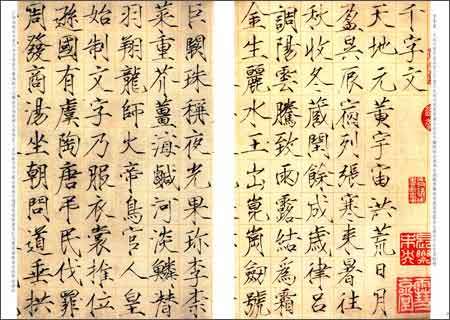 千字文
天地元黃宇宙洪荒日月
盈昃辰宿列張寒来暑往
秋收冬藏閏餘成歲律呂
調陽雲騰致雨露結為霜
金生麗水玉出崑岡劒號
巨闕珠稱夜光果珍李柰
菜重芥薑海鹹河淡鱗潛
羽翔龍師火帝鳥官人皇
始制文字乃服衣裳推位
遜國有虞陶唐弔民伐罪
周發商湯坐朝問道垂拱